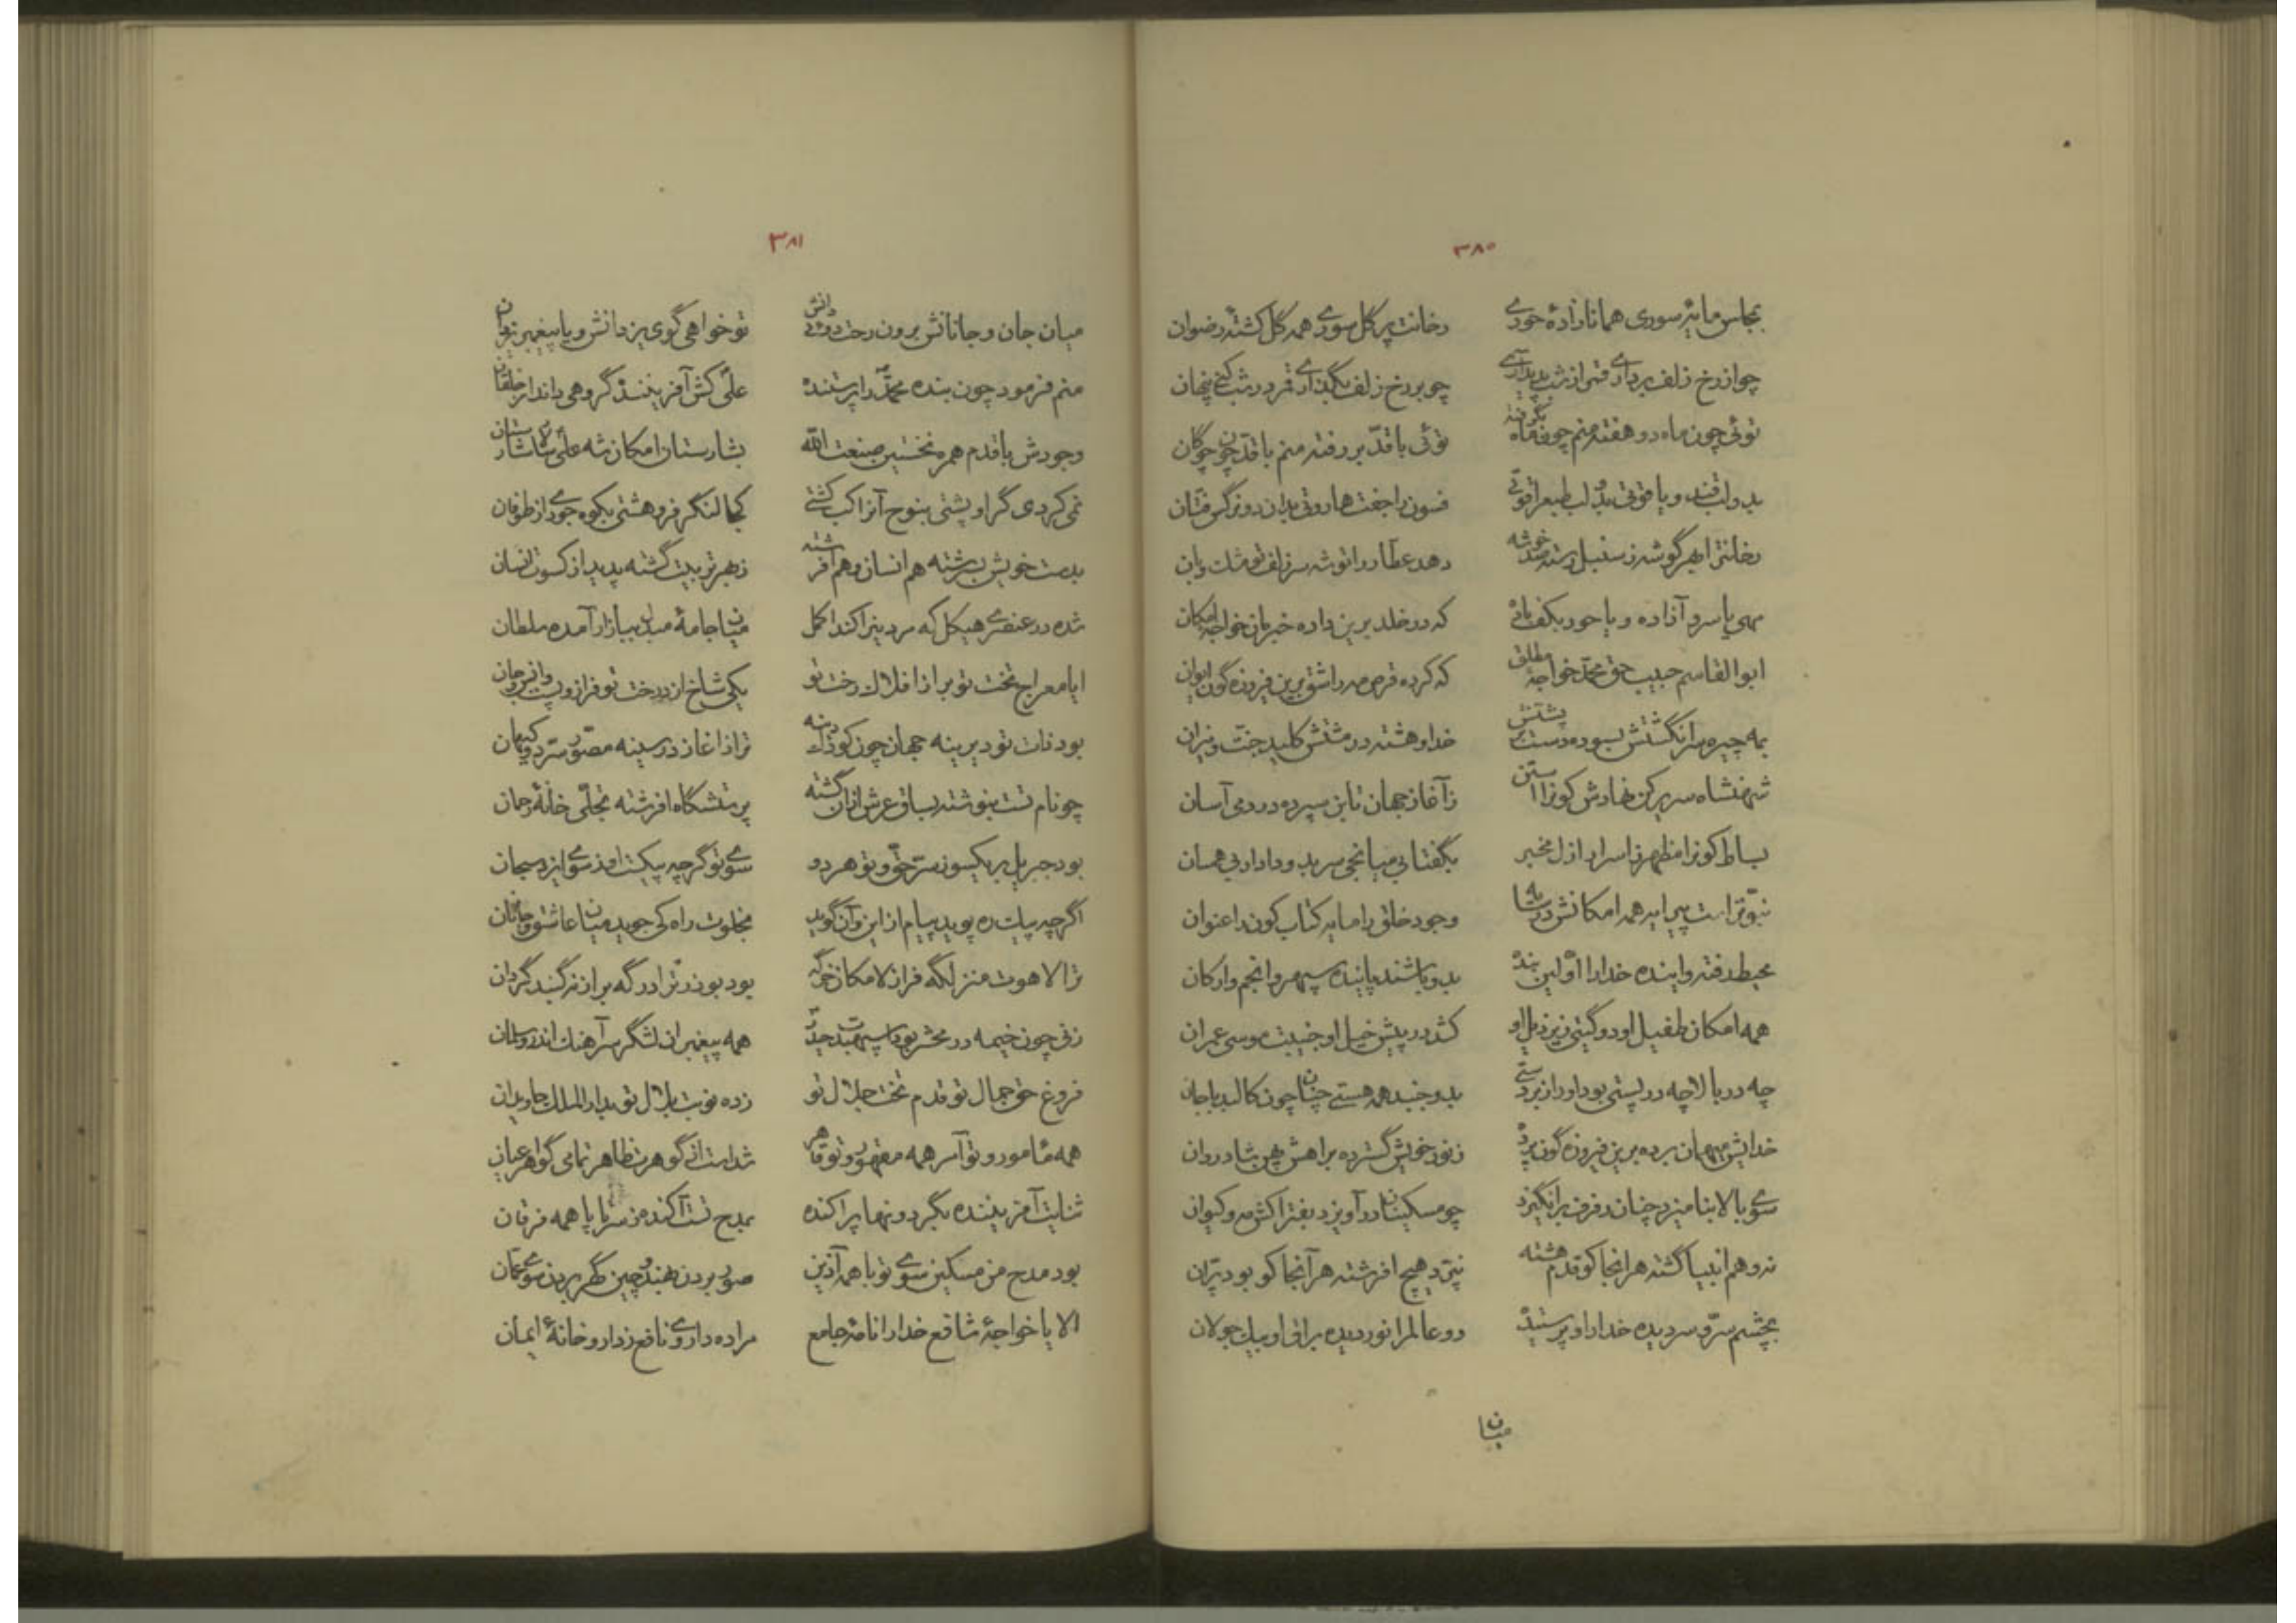 ۳۸۰
بجاس مانیر سوری همانا زادهٔ حوری رخانت پر گل سوری همه گل کشتهٔ رضوان
چو از رخ زلف برداری قمر از شب پدید آری چو بر رخ زلف بگذاری قمر در شب کنی پنهان
توئی چون ماه دو هفته منم چون ماه بگرفته توئی با قدّ بر رفته منم با قدّ چون چوگان
بدو لب قند و یا قوتی بدو لب طبع را قوتی فسون را جفت هاروتی بدان دو نرگس فتّان
رخانترا بهر گوشه ز سنبل رسته صد خوشه دهد عطار را توشه سر زلف تو مشک و بان
مهی یا سرو آزاده و یا حور بکف باده که در خلد برین داده خبر زان خواجهٔ امکان
ابوالقاسم حبیب حق محمّد خواجهٔ مطلق که کرده قرص مه را شق برین فیروزه گون ایوان
بمه چیره سر انگشتش بسوده دست پشتش خدا وهشته در مشتش کلید جنّت و نیران
شهنشاه سریر کن نهادش کون را استن ز آغاز جهان تا بن سپرده در دمی آسان
بساط کون را مظهر ز اسرار ازل مخبر بگفتا بی میانجی سر بدو دادار بی همسان
نبوّتراست پیرایه همه امکانش در سایه وجود خلق را مایه کتاب کون را عنوان
محیط رفته و اینده خدا را اوّلین بنده بدو باشند پاینده سپهر و انجم و ارکان
همه امکان طفیل او دو گیتی زیر ذیل او کشد در پیش خیل او جنیبت موسی عمران
چه در بالا چه در پستی بود او را زبردستی بدو جنبد همه هستی چنان چون کالبد با جان
خدایش میهمان برده برین فیروزه گون پرده ز نور خویش گسترده براهش پهن شادروان
سوی بالا بنامیزد چنان رفرف برانگیزد چو مسکینان در آویزد بفتراکش مه و کیوان
نه وهم انبیا گشته هر انجا کو قدم هشته نپرّد هیچ افرشته هر آنجا کو بود پرّان
بچشم سرّ و سر دیده خدا را و پرستیده دو عالم را نوردیده براق او بیک جولان
میان
۳۸۱
میان جان و جانانش برون رخت دوئی دانش تو خواهی گوی یزدانش و یا پیغمبر یزدان
منم فرمود چون بنده محمّد را پرستنده علّی کش آفریننده گروهی داند از خلقان
وجودش با قدم همره نخستین صنعت الله بشارستان امکان شه علّی شاه شارستان
نمی کردی گر او پشتی بنوح آنرا کب کشتی کجا لنگر فرو هشتی بکوه جودی از طوفان
بدست خویش بسرشته هم انسان و هم افرشته ز بهر تربیت گشته پدید از کسوت انسان
شده در عنصری هیکل که مردم را کند اکمل میان جامهٔ مبدل ببازار آمده سلطان
ایا معراج تخت تو بر از افلاک رخت تو یکی شاخ از درخت تو فراز و پست وانس و جان
بود ذات تو دیرینه جهان چون کودک دینه ترا ز اغاز در سینه مصوّر سرّ دو کیهان
چو نام تست بنوشته بساق عرش از ان گشته پرستشگاه افرشته تجلّی خانهٔ رحمان
بود جبریل بر یکسو ز سرّ حقّ و تو هر دو سوی تو گرچه پیکست او ز سوی ایزد سبحان
اگرچه پیک ره پوید پیام از این و آن گوید بخلوت راه کی جوید میان عاشق و جانان
ترا لاهوت منزلگه فراز لامکان خرگه بود بوذر ترا درگه بر از نه گنبد گردان
زنی چون خیمه در محشر بود است سپهبد حیدر همه پیغمبران لشگر سر آهنک اندر و سلمان
فروغ حق جمال تو قدم تخت جلال تو زده نوبت بلال تو بدار الملک جاویدان
همه مأمور و تو آمر همه مقهور و تو قاهر شد است از گوهرت ظاهر تمامی گواهر اعیان
ثنایت آفریننده بگیرد و نها پراکنده بمدح تست آکنده ز سر تا پا همه فرقان
بود مدح من مسکین سوی تو با همه آذین صور بردن بهند و چین گهر بردن سوی عمّان
الا یا خواجهٔ شافع خدا را نامهٔ جامع مرا ده داروی نافع ز دارو خانهٔ ایمان